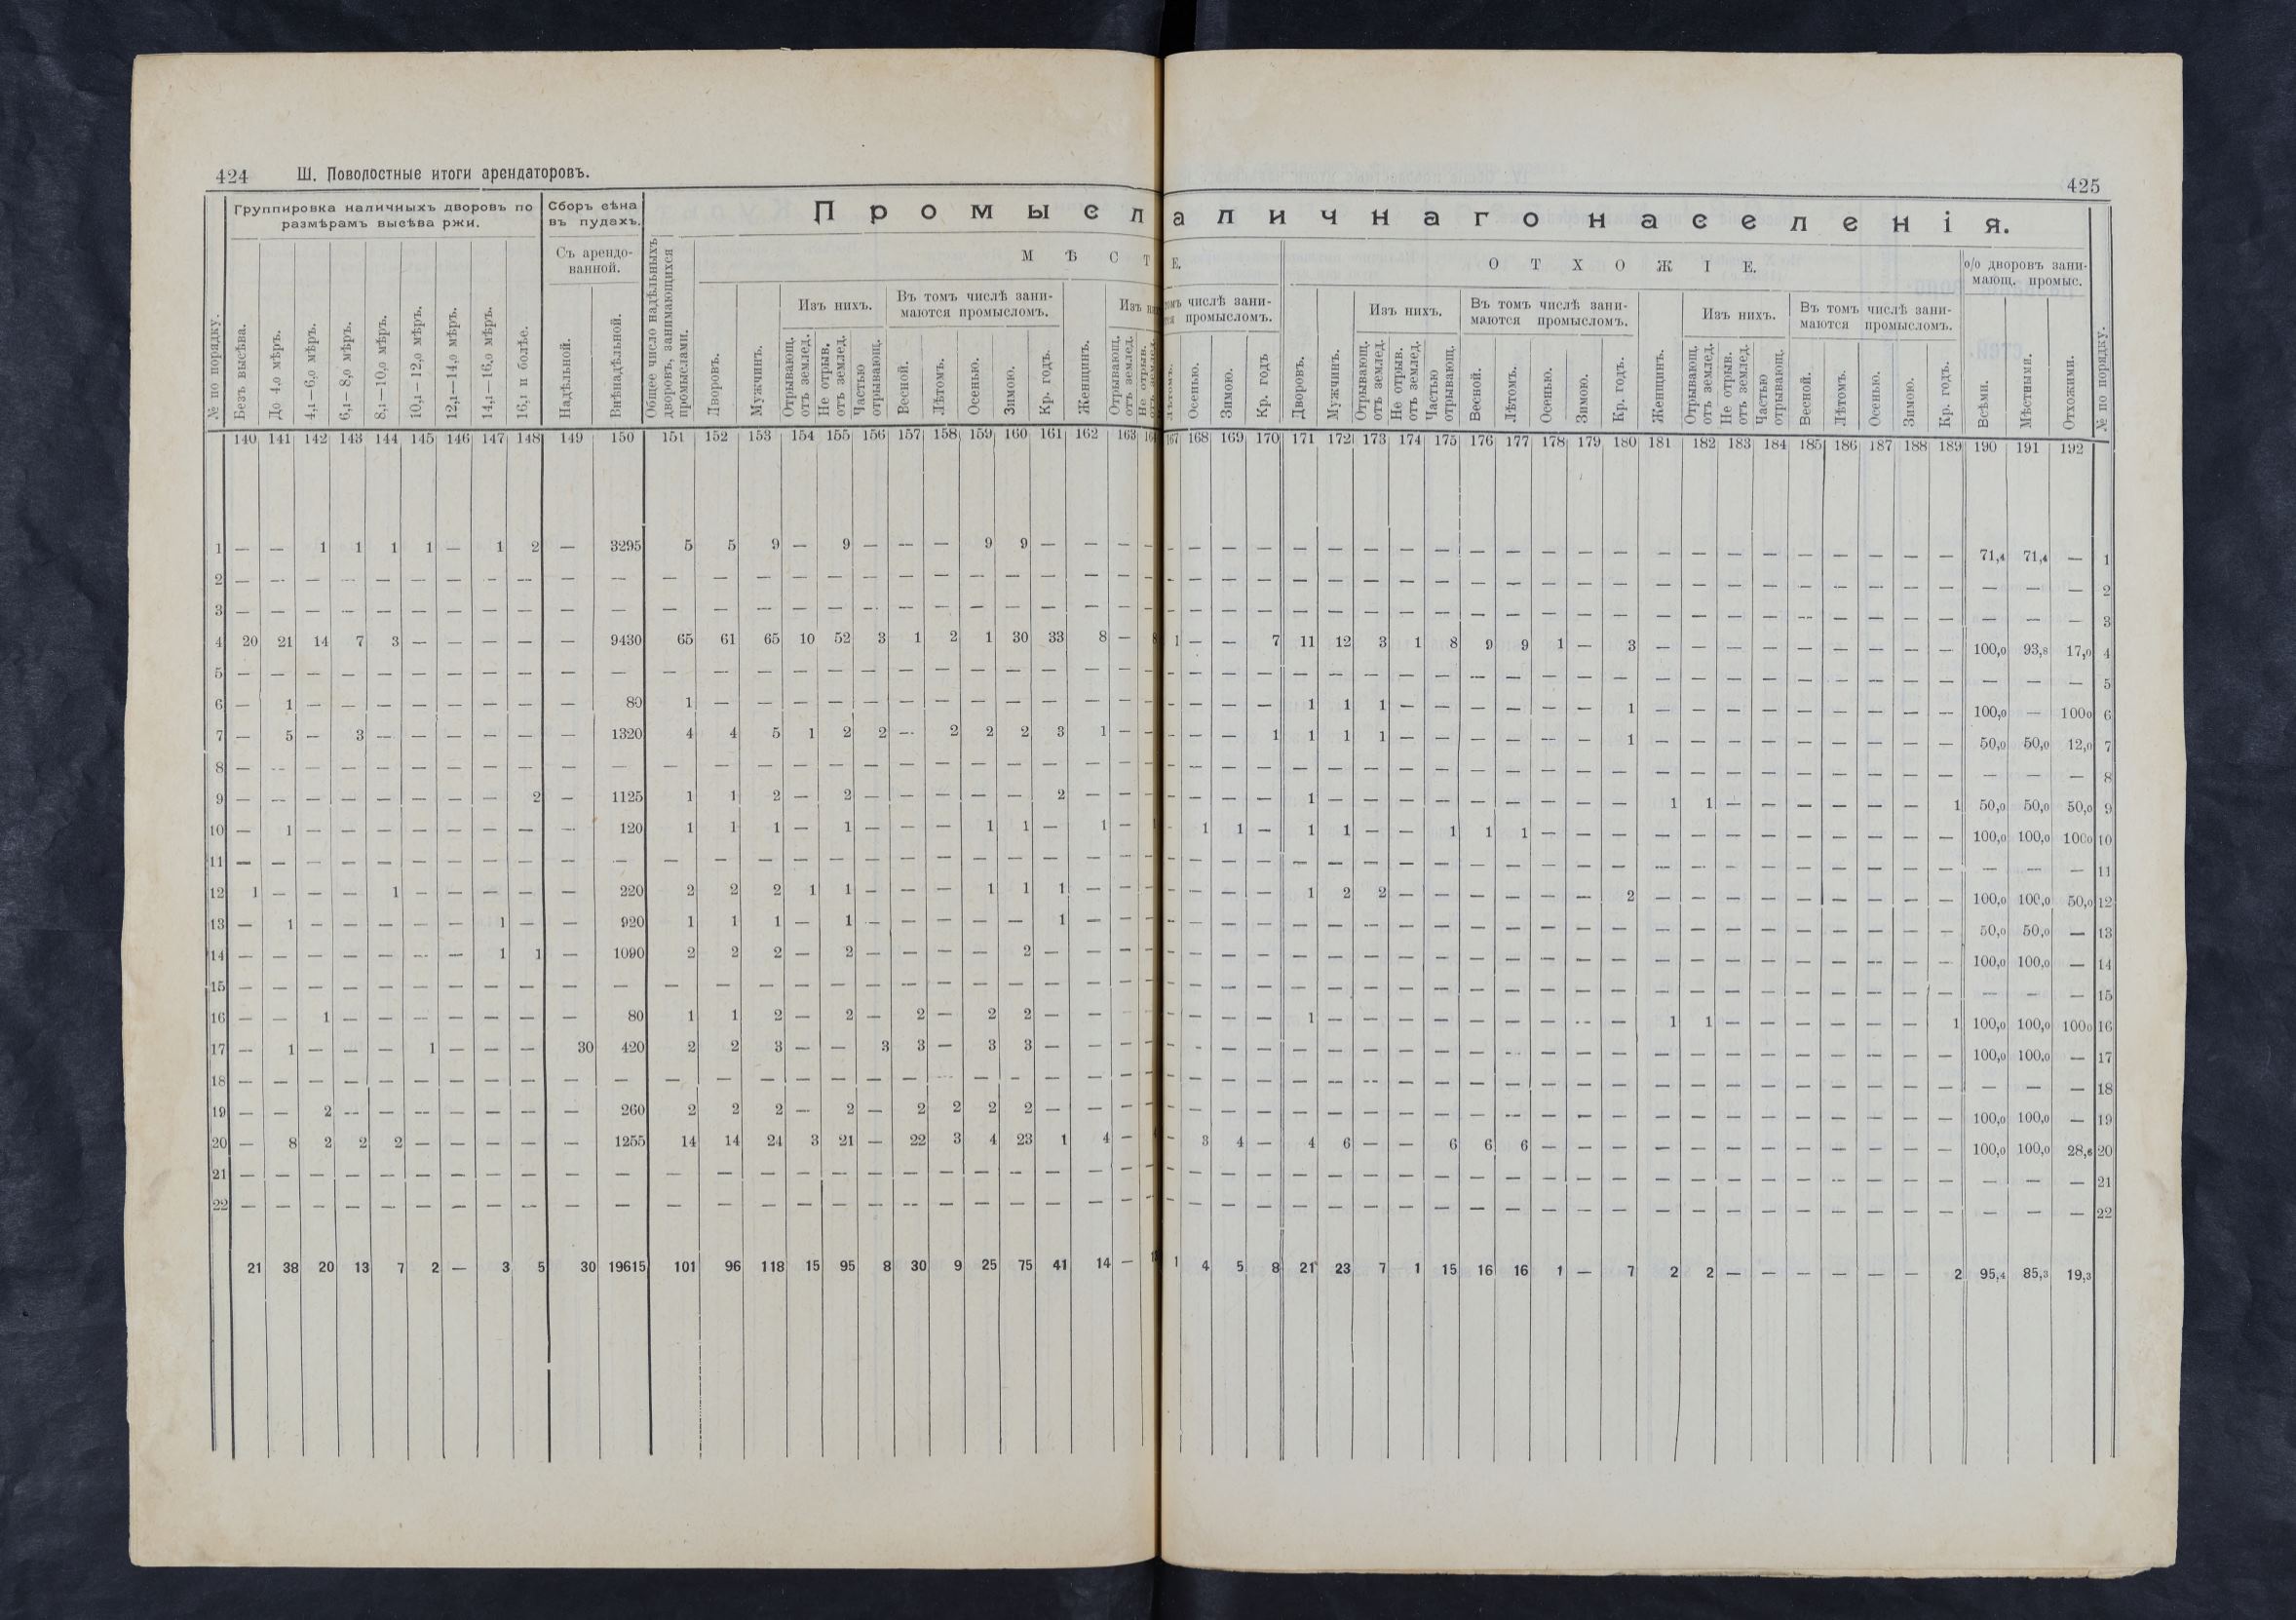 424 Ш. Поволостные итоги арендаторовъ.
425
№ по порядку.
Группировка наличныхъ дворовъ по
размѣрамъ высѣва ржи.
Безъ высѣва.
До 4,0 мѣръ.
4,1—6,0 мѣръ.
6,1—8,0 мѣръ.
8,1—10,0 мѣръ.
10,1—12,0 мѣръ.
12,1—14,0 мѣръ.
14,1—16,0 мѣръ.
16,1 и болѣе.
Сборъ сѣна
въ пудахъ.
Съ арендо-
ванной.
Надѣльной.
Внѣнадѣльной.
Общее число надѣльныхъ
дворовъ, занимающихся
промыслами.
Промысл
аличнаго населенія.
МѢСТ
Е.
Дворовъ.
Мужчинъ.
Изъ нихъ.
Отрывающ.
отъ землед.
Не отрыв.
отъ землед.
Частью
отрывающ.
Въ томъ числѣ зани-
маются промысломъ.
Весной.
Лѣтомъ.
Осенью.
Зимою.
Кр. годъ.
Женщинъ.
Изъ
Отрывающ.
отъ землед.
Не отрыв.
числѣ зани-
промысломъ.
Осенью.
Зимою.
Кр. годъ
ОТХОЖІЕ.
Дворовъ.
Мужчинъ.
Изъ нихъ.
Отрывающ.
отъ землед.
Не отрыв.
отъ землед.
Частью
отрывающ.
Въ томъ числѣ зани-
маются промысломъ.
Весной.
Лѣтомъ.
Осенью.
Зимою.
Кр. годъ.
Женщинъ.
Изъ нихъ.
Отрывающ.
отъ землед.
Не отрыв.
отъ землед.
Частью
отрывающ.
Въ томъ числѣ зани-
маются промысломъ.
Весной.
Лѣтомъ.
Осенью.
Зимою.
Кр. годъ.
о/о дворовъ зани-
мающ. промыс.
Всѣми.
Мѣстными.
Отхожими.
№ по порядку.
140 141 142 143 144 145 146 147 148 149 150 151 152 153 154 155 156 157 158 159 160 161 162 163 167 168 169 170 171 172 173 174 175 176 177 178 179 180 181 182 183 184 185 186 187 188 189 190 191 192
1 — — 1 1 1 1 — 1 2 — 3295 5 5 9 — 9 — — — 9 9 — — — — — — — — — — — — — — — — — — — — — — — — — — — 71,4 71,4 — 1
2 — — — — — — — — — — — — — — — — — — — — — — — — — — — — — — — — — — — — — — — — — — — — — — — — — — — 2
3 — — — — — — — — — — — — — — — — — — — — — — — — — — — — — — — — — — — — — — — — — — — — — — — — — — — 3
4 20 21 14 7 3 — — — — — 9430 65 61 65 10 52 3 1 2 1 30 33 8 — 8 1 — — 7 11 12 3 1 8 9 9 1 — 3 — — — — — — — — — 100,0 93,8 17,0 4
5 — — — — — — — — — — — — — — — — — — — — — — — — — — — — — — — — — — — — — — — — — — — — — — — — — — — 5
6 — 1 — — — — — — — — 80 1 — — — — — — — — — — — — — — — — — 1 1 1 — — — — — — 1 — — — — — — — — — 100,0 — 100,0 6
7 — 5 — 3 — — — — — — 1320 4 4 5 1 2 2 — 2 2 2 3 1 — — — — — 1 1 1 1 — — — — — — 1 — — — — — — — — — 50,0 50,0 12,0 7
8 — — — — — — — — — — — — — — — — — — — — — — — — — — — — — — — — — — — — — — — — — — — — — — — — — — — 8
9 — — — — — — — — 2 — 1125 1 1 2 — 2 — — — — — 2 — — — — — — — 1 — — — — — — — — — 1 1 — — — — — — 1 50,0 50,0 50,0 9
10 — 1 — — — — — — — — 120 1 1 1 — 1 — — — 1 1 — 1 — — 1 1 — 1 1 — — 1 1 1 — — — — — — — — — — — — 100,0 100,0 100,0 10
11 — — — — — — — — — — — — — — — — — — — — — — — — — — — — — — — — — — — — — — — — — — — — — — — — — — — 11
12 1 — — — 1 — — — — — 220 2 2 2 1 1 — — — 1 1 1 — — — — — — — 1 2 2 — — — — — — 2 — — — — — — — — — 100,0 100,0 50,0 12
13 — 1 — — — — — 1 — — 920 1 1 1 — 1 — — — — — 1 — — — — — — — — — — — — — — — — — — — — — — — — — — 50,0 50,0 — 13
14 — — — — — — — 1 1 — 1090 2 2 2 — 2 — — — — 2 — — — — — — — — — — — — — — — — — — — — — — — — — — — 100,0 100,0 — 14
15 — — — — — — — — — — — — — — — — — — — — — — — — — — — — — — — — — — — — — — — — — — — — — — — — — — — 15
16 — — 1 — — — — — — — 80 1 1 2 — 2 — 2 — 2 2 — — — — — — — — 1 — — — — — — — — — 1 1 — — — — — — 1 100,0 100,0 100,0 16
17 — 1 — — — 1 — — — 30 420 2 2 3 — — 3 3 — 3 3 — — — — — — — — — — — — — — — — — — — — — — — — — — — 100,0 100,0 — 17
18 — — — — — — — — — — — — — — — — — — — — — — — — — — — — — — — — — — — — — — — — — — — — — — — — — — — 18
19 — — 2 — — — — — — — 260 2 2 2 — 2 — 2 2 2 2 — — — — — — — — — — — — — — — — — — — — — — — — — — — 100,0 100,0 — 19
20 — 8 2 2 2 — — — — — 1255 14 14 24 3 21 — 22 3 4 23 1 4 — — 3 4 — 4 6 — — 6 6 6 — — — — — — — — — — — — 100,0 100,0 28,6 20
21 — — — — — — — — — — — — — — — — — — — — — — — — — — — — — — — — — — — — — — — — — — — — — — — — — — — 21
22 — — — — — — — — — — — — — — — — — — — — — — — — — — — — — — — — — — — — — — — — — — — — — — — — — — — 22
21 38 20 13 7 2 — 3 5 30 19615 101 96 118 15 95 8 30 9 25 75 41 14 — 1 4 5 8 21 23 7 1 15 16 16 1 — 7 2 2 — — — — — — 2 95,4 85,3 19,3